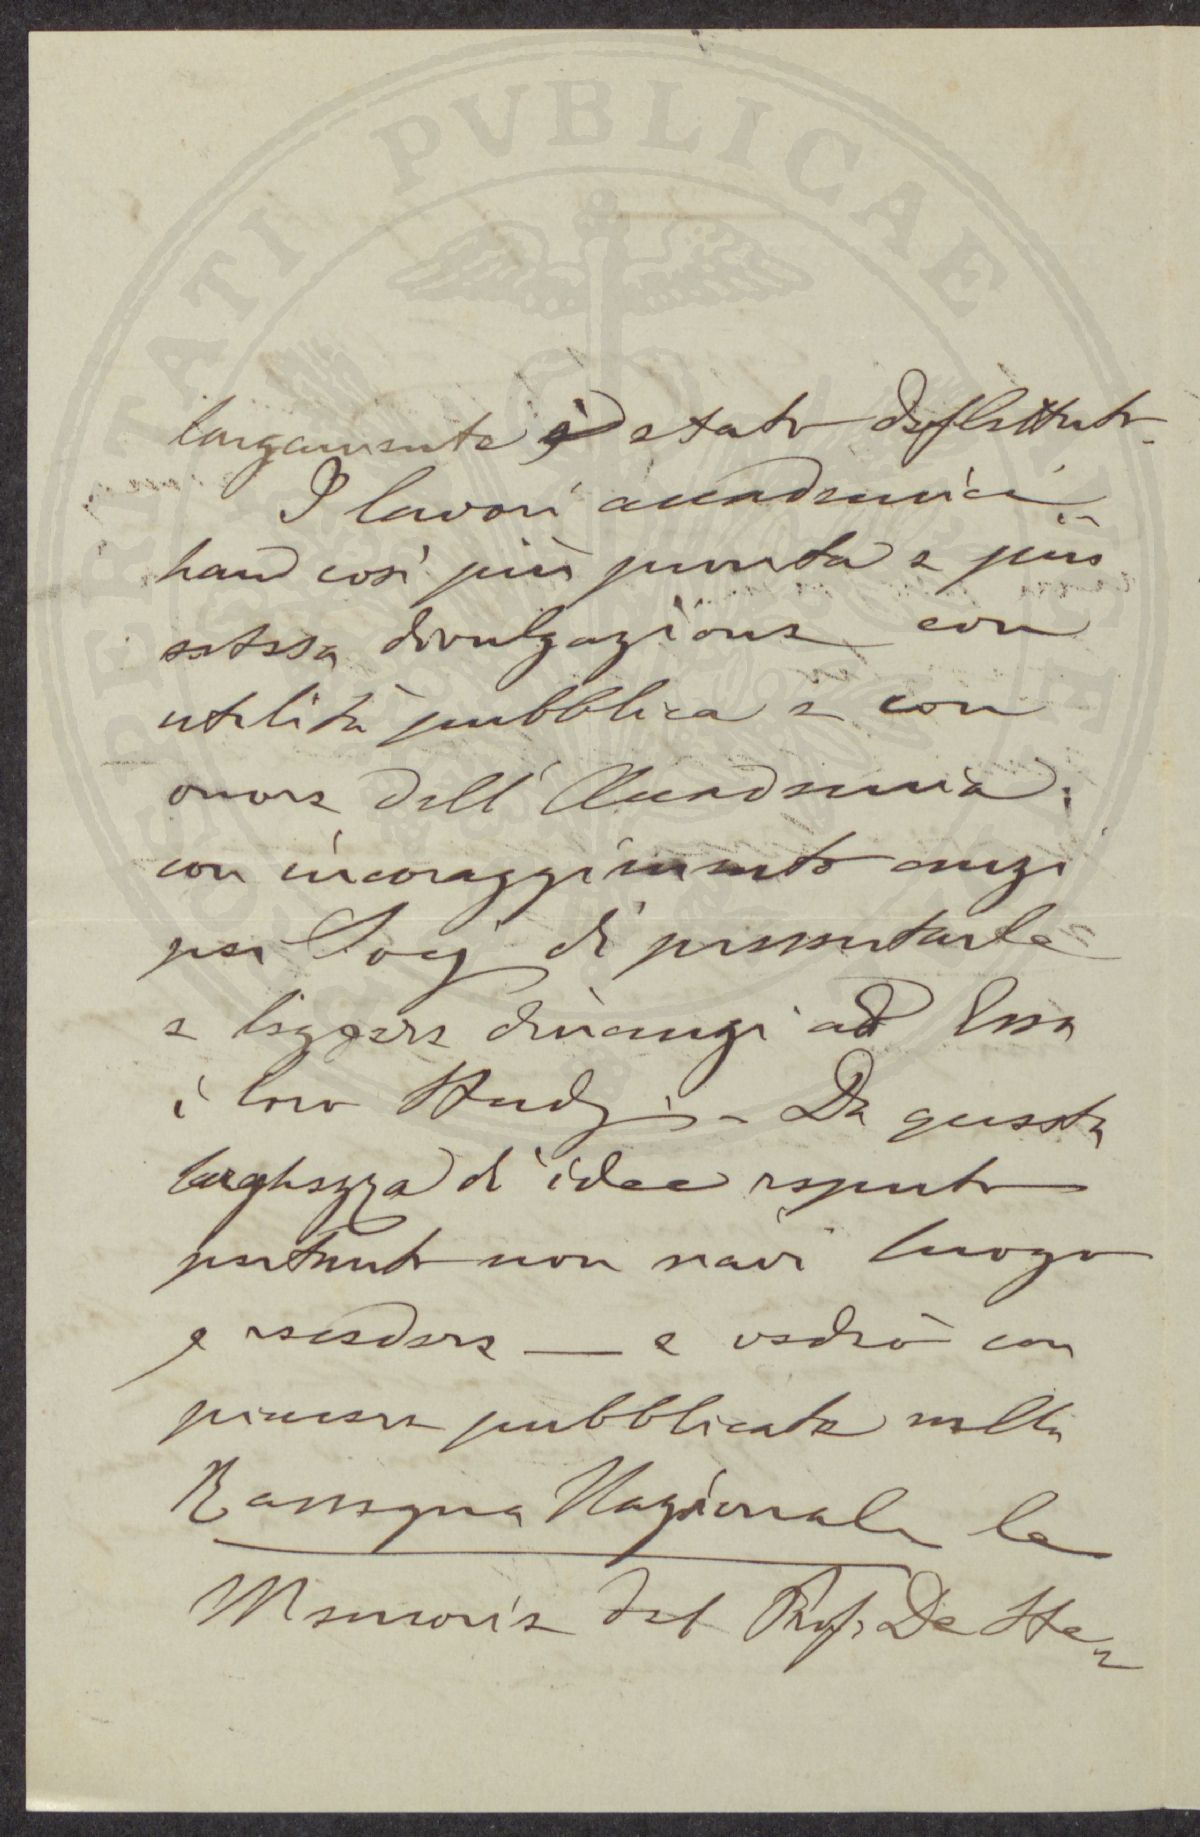 PVBLICAE
largamente è stato deflettuto.
I lavori accademici
hanno così più pronta e più
estesa divulgazione con
utilità pubblica e con
onore dell'Accademia:
con incoraggiamento anzi
pei Socj di presentarle
e leggere dinanzi ad Essa
i loro Studj. - Da questa
larghezza di idee reputo
pertanto non siavi luogo
a recedere — e vedrò con
piacere pubblicate nella
Rassegna Nazionale le
Memorie del Prof. De Ste-